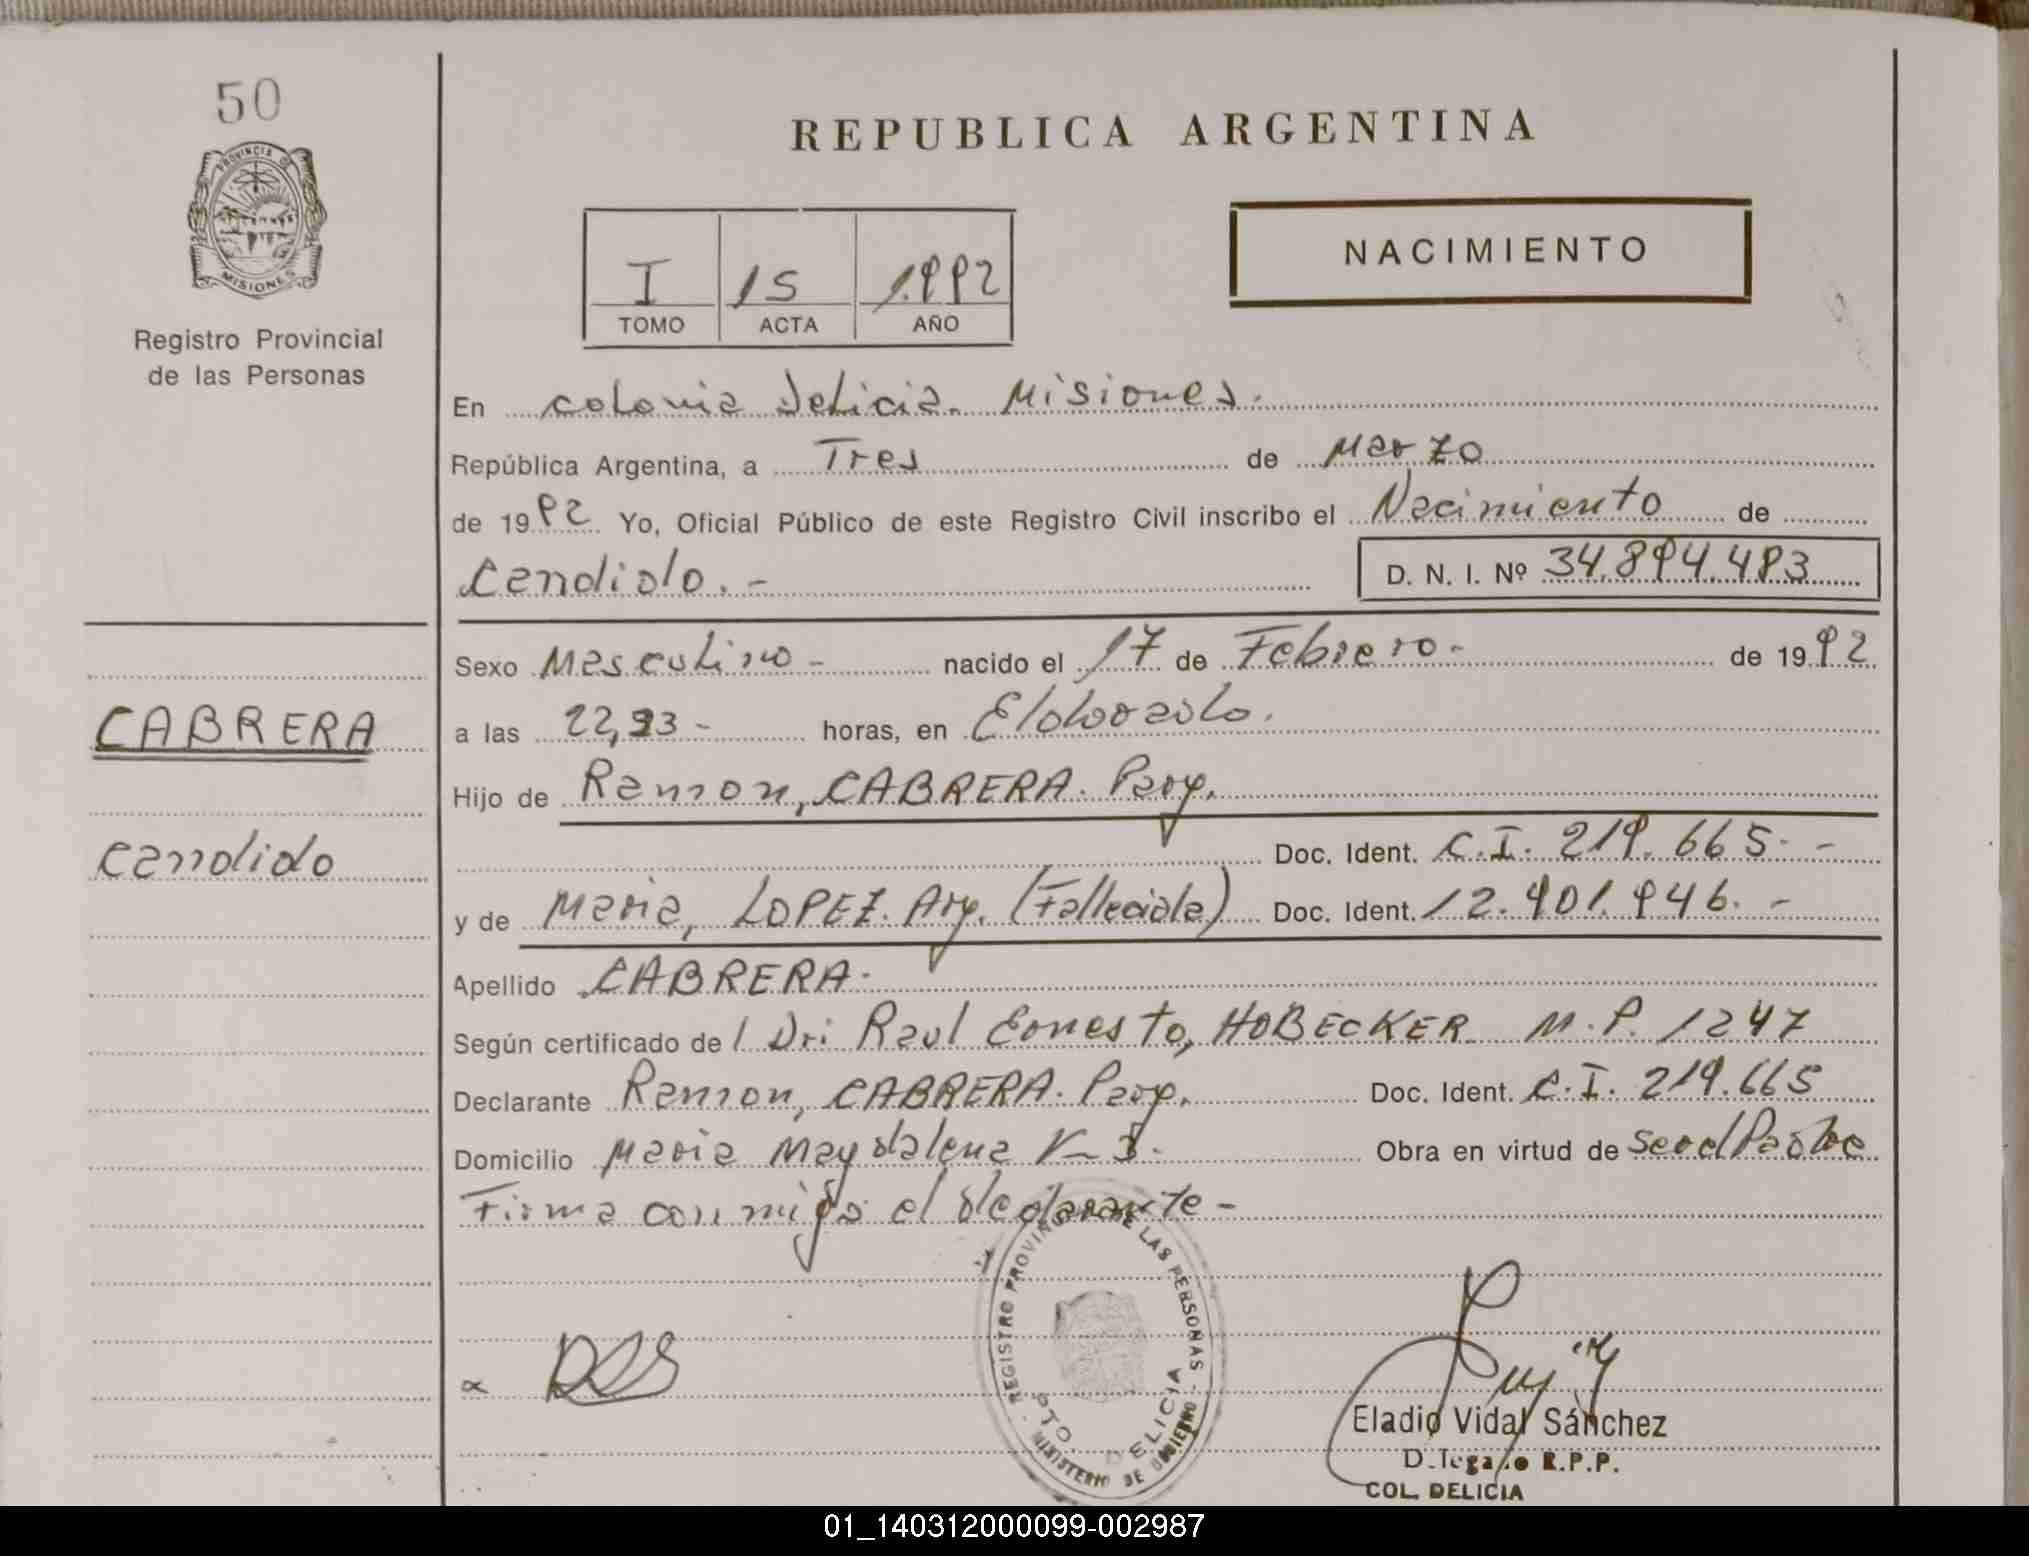 50
PROVINCIA DE
MISIONES
Registro Provincial
de las Personas
CABRERA
Candido
REPUBLICA ARGENTINA
NACIMIENTO
I 15 1992
TOMO ACTA AÑO
En colonia Delicia. Misiones.
República Argentina, a Tres de Marzo
de 1992 Yo, Oficial Público de este Registro Civil inscribo el Nacimiento de
Candido.-
D. N. I. Nº 34.894.483
Sexo Masculino- nacido el 17 de Febrero- de 1992
a las horas, en Eldorado.
Hijo de Ramon, CABRERA. Parg.
Doc. Ident. C.I. 219.665.-
y de Maria, LOPEZ. Arg. (Fallecida) Doc. Ident. 12.901.946.-
Apellido CABRERA.
Según certificado de l Dr: Raul Ernesto, HOBECKER M.P. 1247
Declarante Ramon, CABRERA. Parg. Doc. Ident. C.I. 219.665
Domicilio Maria Magdalena K- 3. Obra en virtud de ser el Padre
Firma conmigo el declarante-
REGISTRO PROVINCIAL DE LAS PERSONAS
PTO. DELICIA
MINISTERIO DE GOBIERNO
Eladio Vidal Sánchez
Delegado R.P.P.
COL. DELICIA
01_140312000099-002987